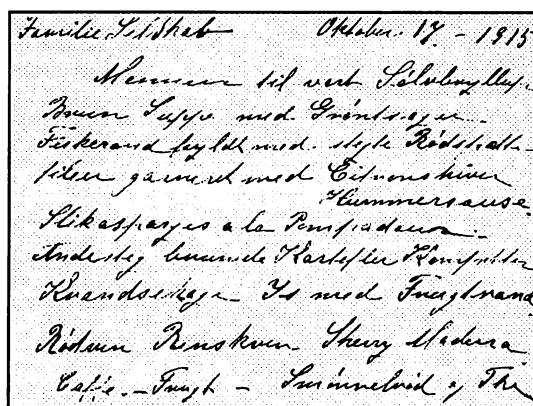 Familie Selskab Oktober 17 - 1915
Menuen til vort Sølvbryllup.
Brun Suppe med Grøntsager.
Fiskerand fyldt med stegte Rødspætte-
fileer garneret med Citronskiver
Hummersause.
Slikasparges a la Pompadour.
Andesteg brunede Kartofler Kompotter
Is med Frugtrand
Rødvin Rinskvin Sherry Madeira
Caffe. - Frugt - og The